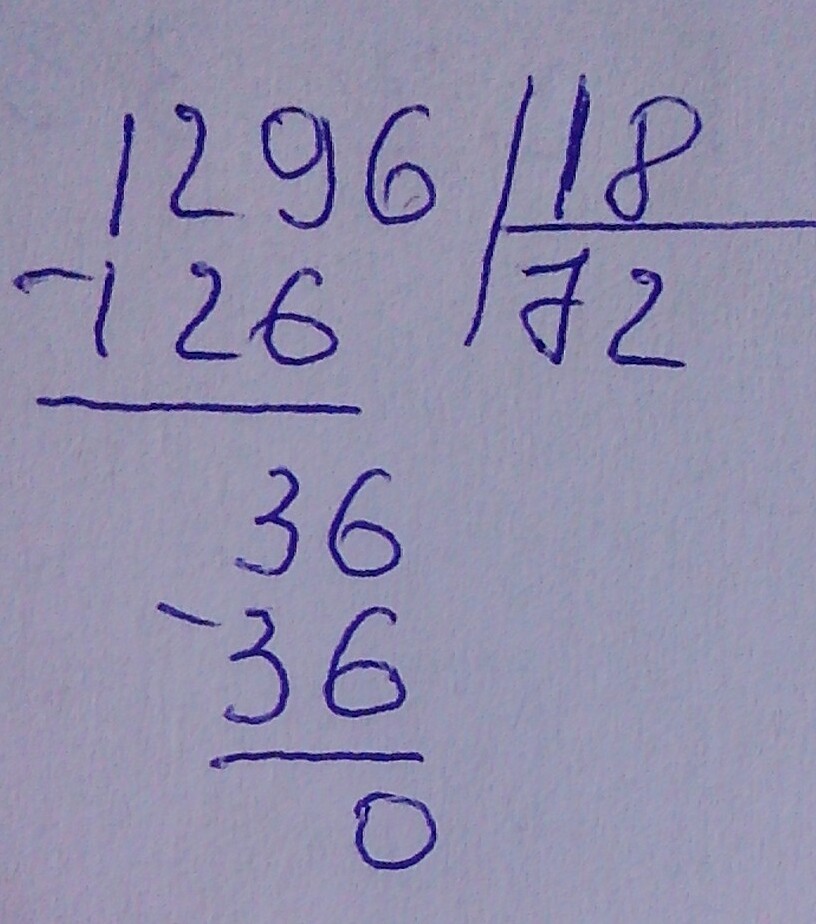 1296 18
-126 72
36
-36
0